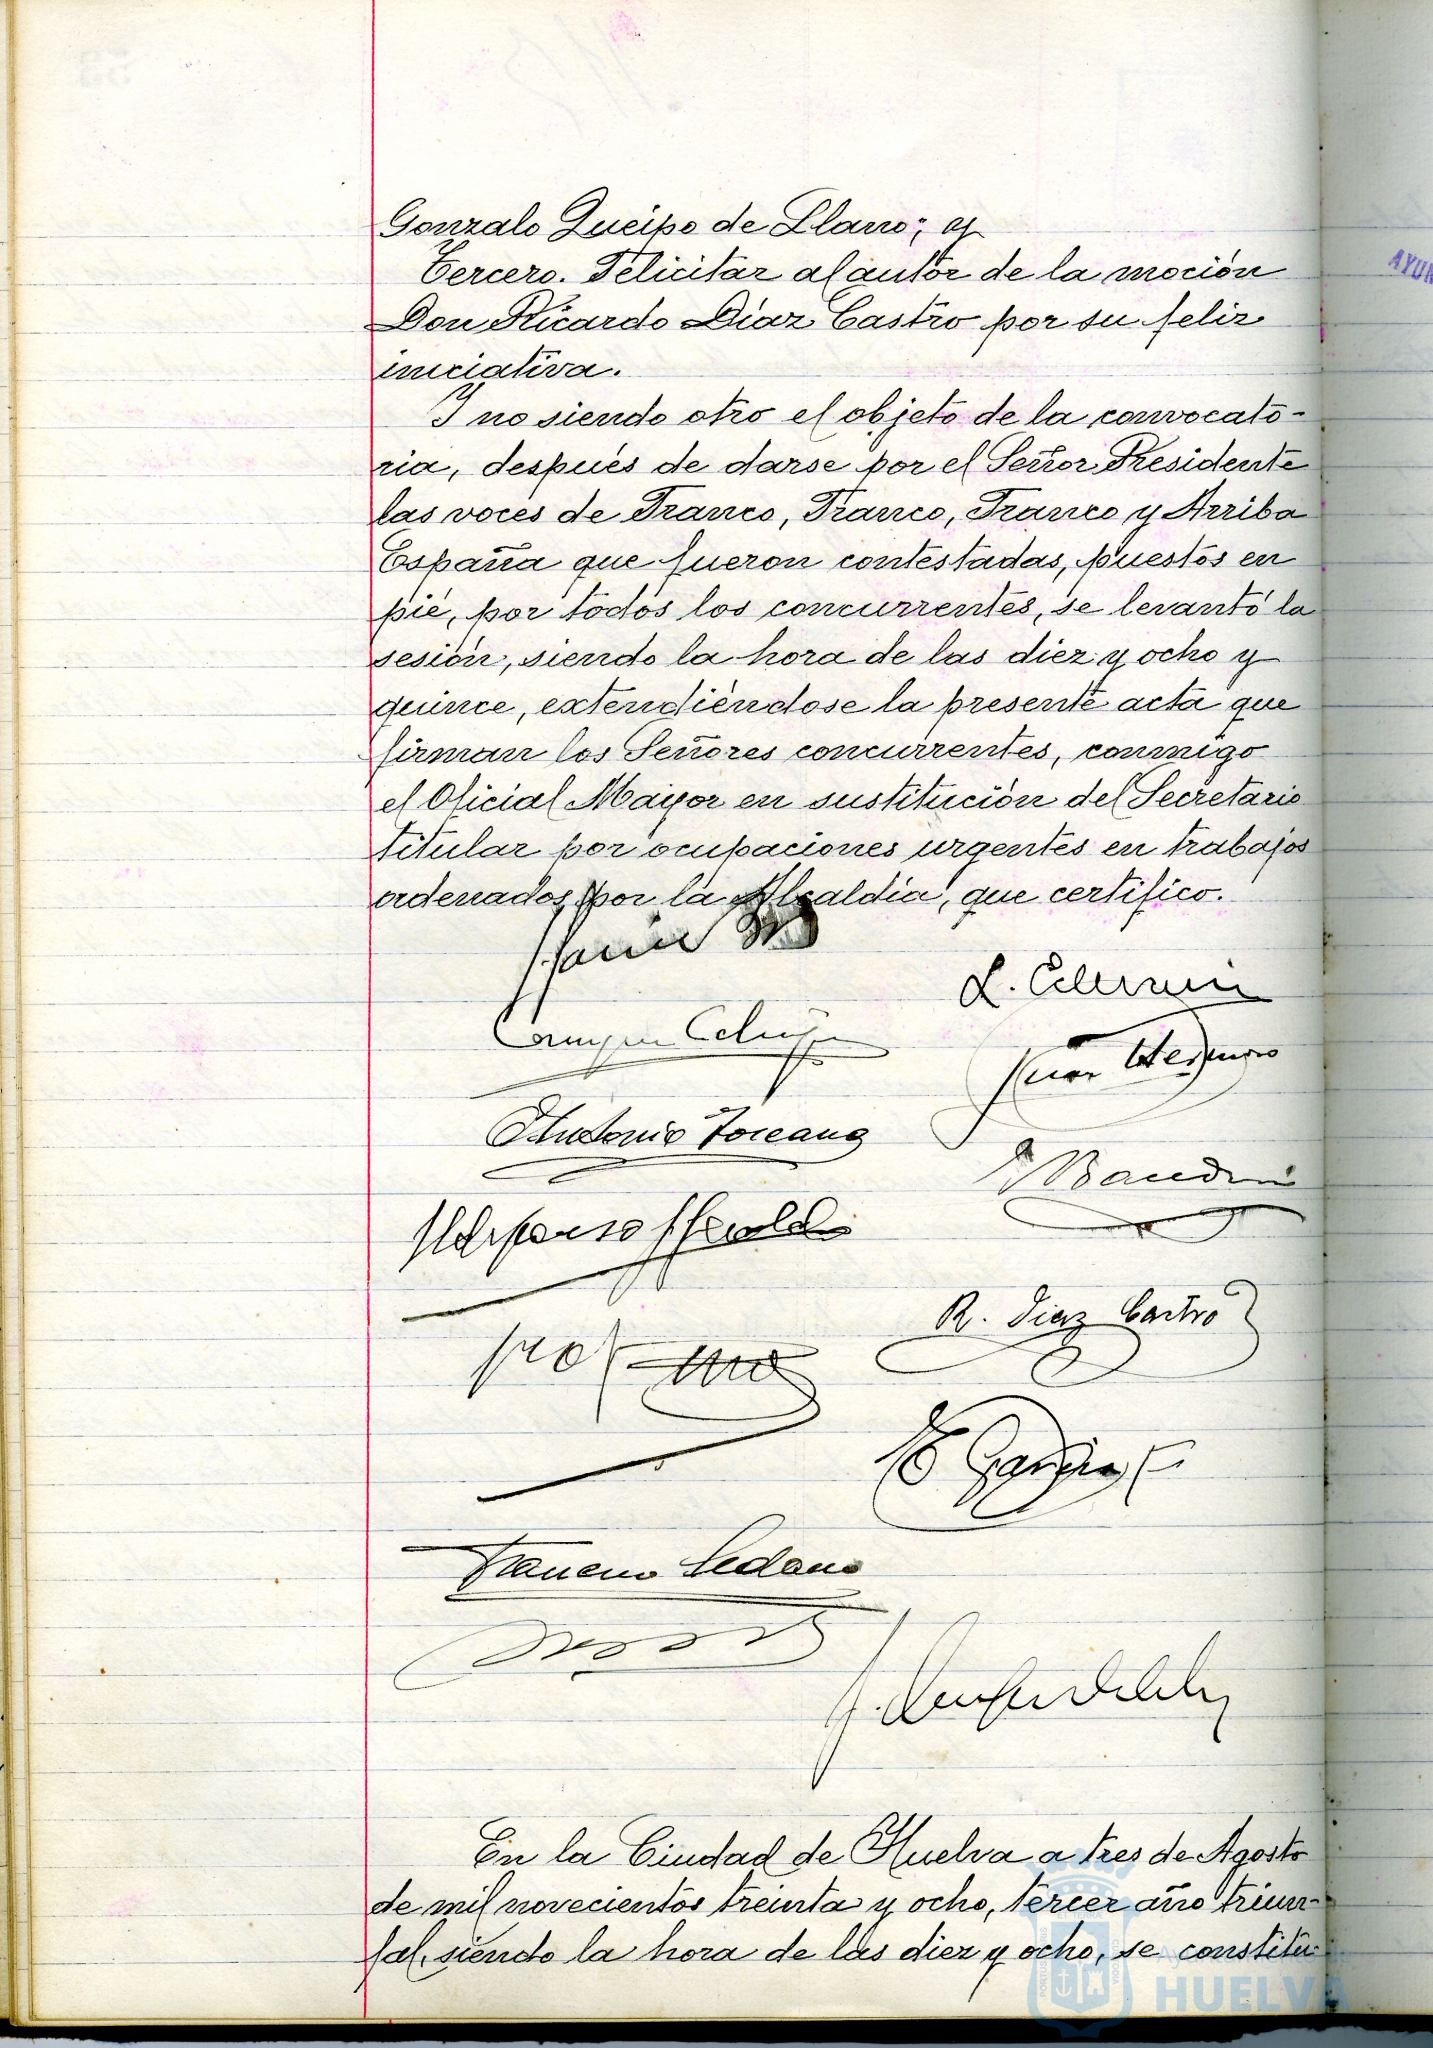 Gonzalo Queipo de Llano; y
Tercero. Felicitar al autor de la moción
Don Ricardo Díaz Castro por su feliz
iniciativa.
Y no siendo otro el objeto de la convocato-
ria, después de darse por el Señor Presidente
las voces de Franco, Franco, Franco y Arriba
España que fueron contestadas, puestos en
pié, por todos los concurrentes, se levantó la
sesión, siendo la hora de las diez y ocho y
quince, extendiéndose la presente acta que
firman los Señores concurrentes, conmigo
el Oficial Mayor en sustitución del Secretario
titular por ocupaciones urgentes en trabajos
ordenados por la Alcaldía, que certifico.
Antonio Toscano
R. Diaz Castro
Francisco Sedano
En la Ciudad de Huelva a tres de Agosto
de mil novecientos treinta y ocho, tercer año triun-
fal, siendo la hora de las diez y ocho, se constitu
HUELVA